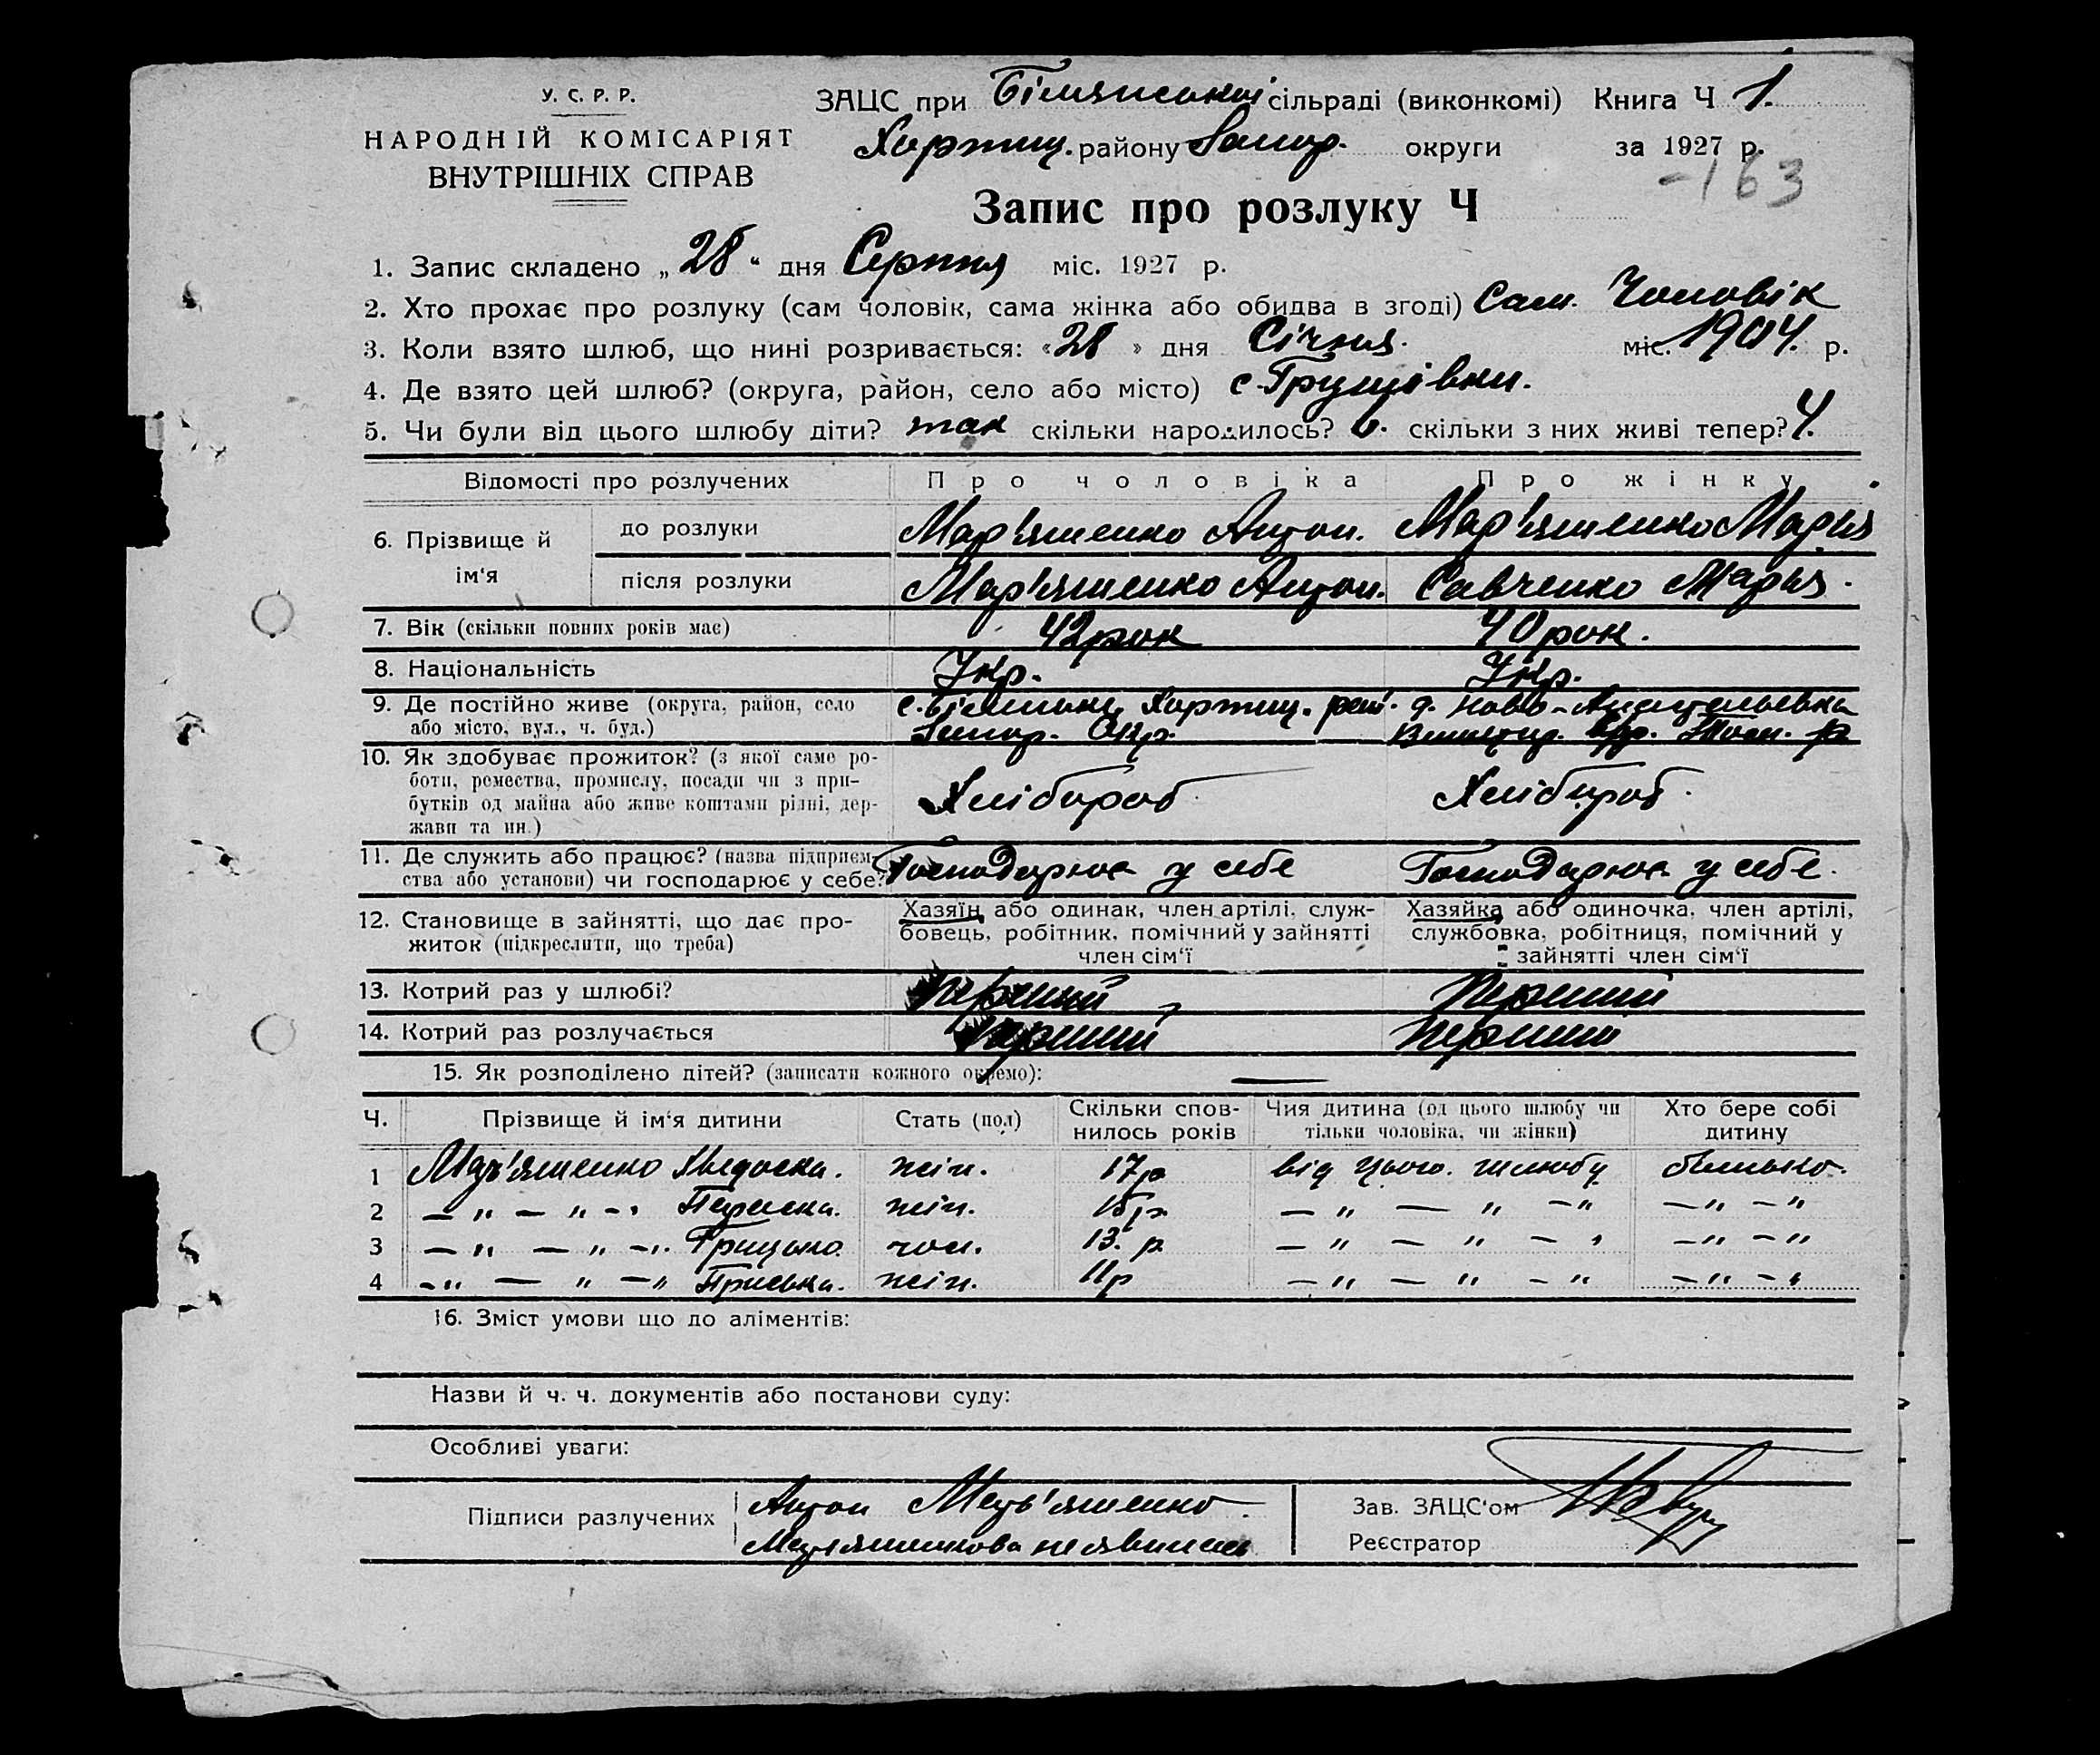 У. С. Р. Р.
НАРОДНІЙ КОМІСАРІЯТ
ВНУТРІШНІХ СПРАВ
ЗАЦС при сільраді (виконкомі) Книга Ч 1.
Хортиц. району Запор. округи за 1927 р.
-163
Запис про розлуку Ч
1. Запис складено „ 28 “ дня Серпня міс. 1927 р.
2. Хто прохає про розлуку (сам чоловік, сама жінка або обидва в згоді) Сам. Чоловік
3. Коли взято шлюб, що нині розривається: « 28 » дня Січня. міс. 1904. р.
4. Де взято цей шлюб? (округа, район, село або місто) с. Грушівки.
5. Чи були від цього шлюбу діти? так скільки народилось? 6. скільки з них живі тепер? 4.
Відомості про розлучених Про чоловіка Про жінку
6. Прізвище й ім‘я
до розлуки Мар'яшенко Антон. Мар'яшенко Марія
після розлуки Мар'яшенко Антон. Савченко Марія.
7. Вік (скільки повних років має) 42 рок 40 рок.
8. Національність Укр. Укр.
9. Де постійно живе (округа, район, село с. Хортиц. рай. Ново-
або місто, вул., ч. буд.) Запор. Окр.
10. Як здобуває прожиток? (з якої саме ро-
боти, ремества, промислу, посади чи з при- Хлібороб Хлібороб.
бутків од майна або живе коштами рідні, дер-
жави та ин.)
11. Де служить або працює? (назва підприєм- Господарює у себе Господарює у себе.
ства або установи) чи господарює у себе?
12. Становище в зайнятті, що дає про-
житок (підкреслити, що треба)
Хазяїн або одинак, член артілі, служ-
бовець, робітник, помічний у зайнятті
член сім‘ї
Хазяйка або одиночка, член артілі,
службовка, робітниця, помічний у
зайнятті член сім‘ї
13. Котрий раз у шлюбі? перший перший
14. Котрий раз розлучається перший перший
15. Як розподілено дітей? (записати кожного окремо): —
Ч. Прізвище й ім‘я дитини Стать (пол) Скільки спов- Чия дитина (од цього шлюбу чи Хто бере собі
нилось років тільки чоловіка, чи жінки) дитину
1 Мар'яшенко жін. 17 р від цього. шлюбу батько.
2 — „ — „ — жін. 15 р — „ — „ — „ — „ — „
3 — „ — „ — Грицько чол. 13. р — „ — „ — „ — „ — „
4 — „ — „ — „ Приська. жін. 11 р — „ — „ — „ — „ — „
16. Зміст умови що до аліментів:
Назви й ч. ч. документів або постанови суду:
Особливі уваги:
Підписи разлучених Антон Мар'яшенко
не явилась
Зав. ЗАЦС‘ом
Реєстратор